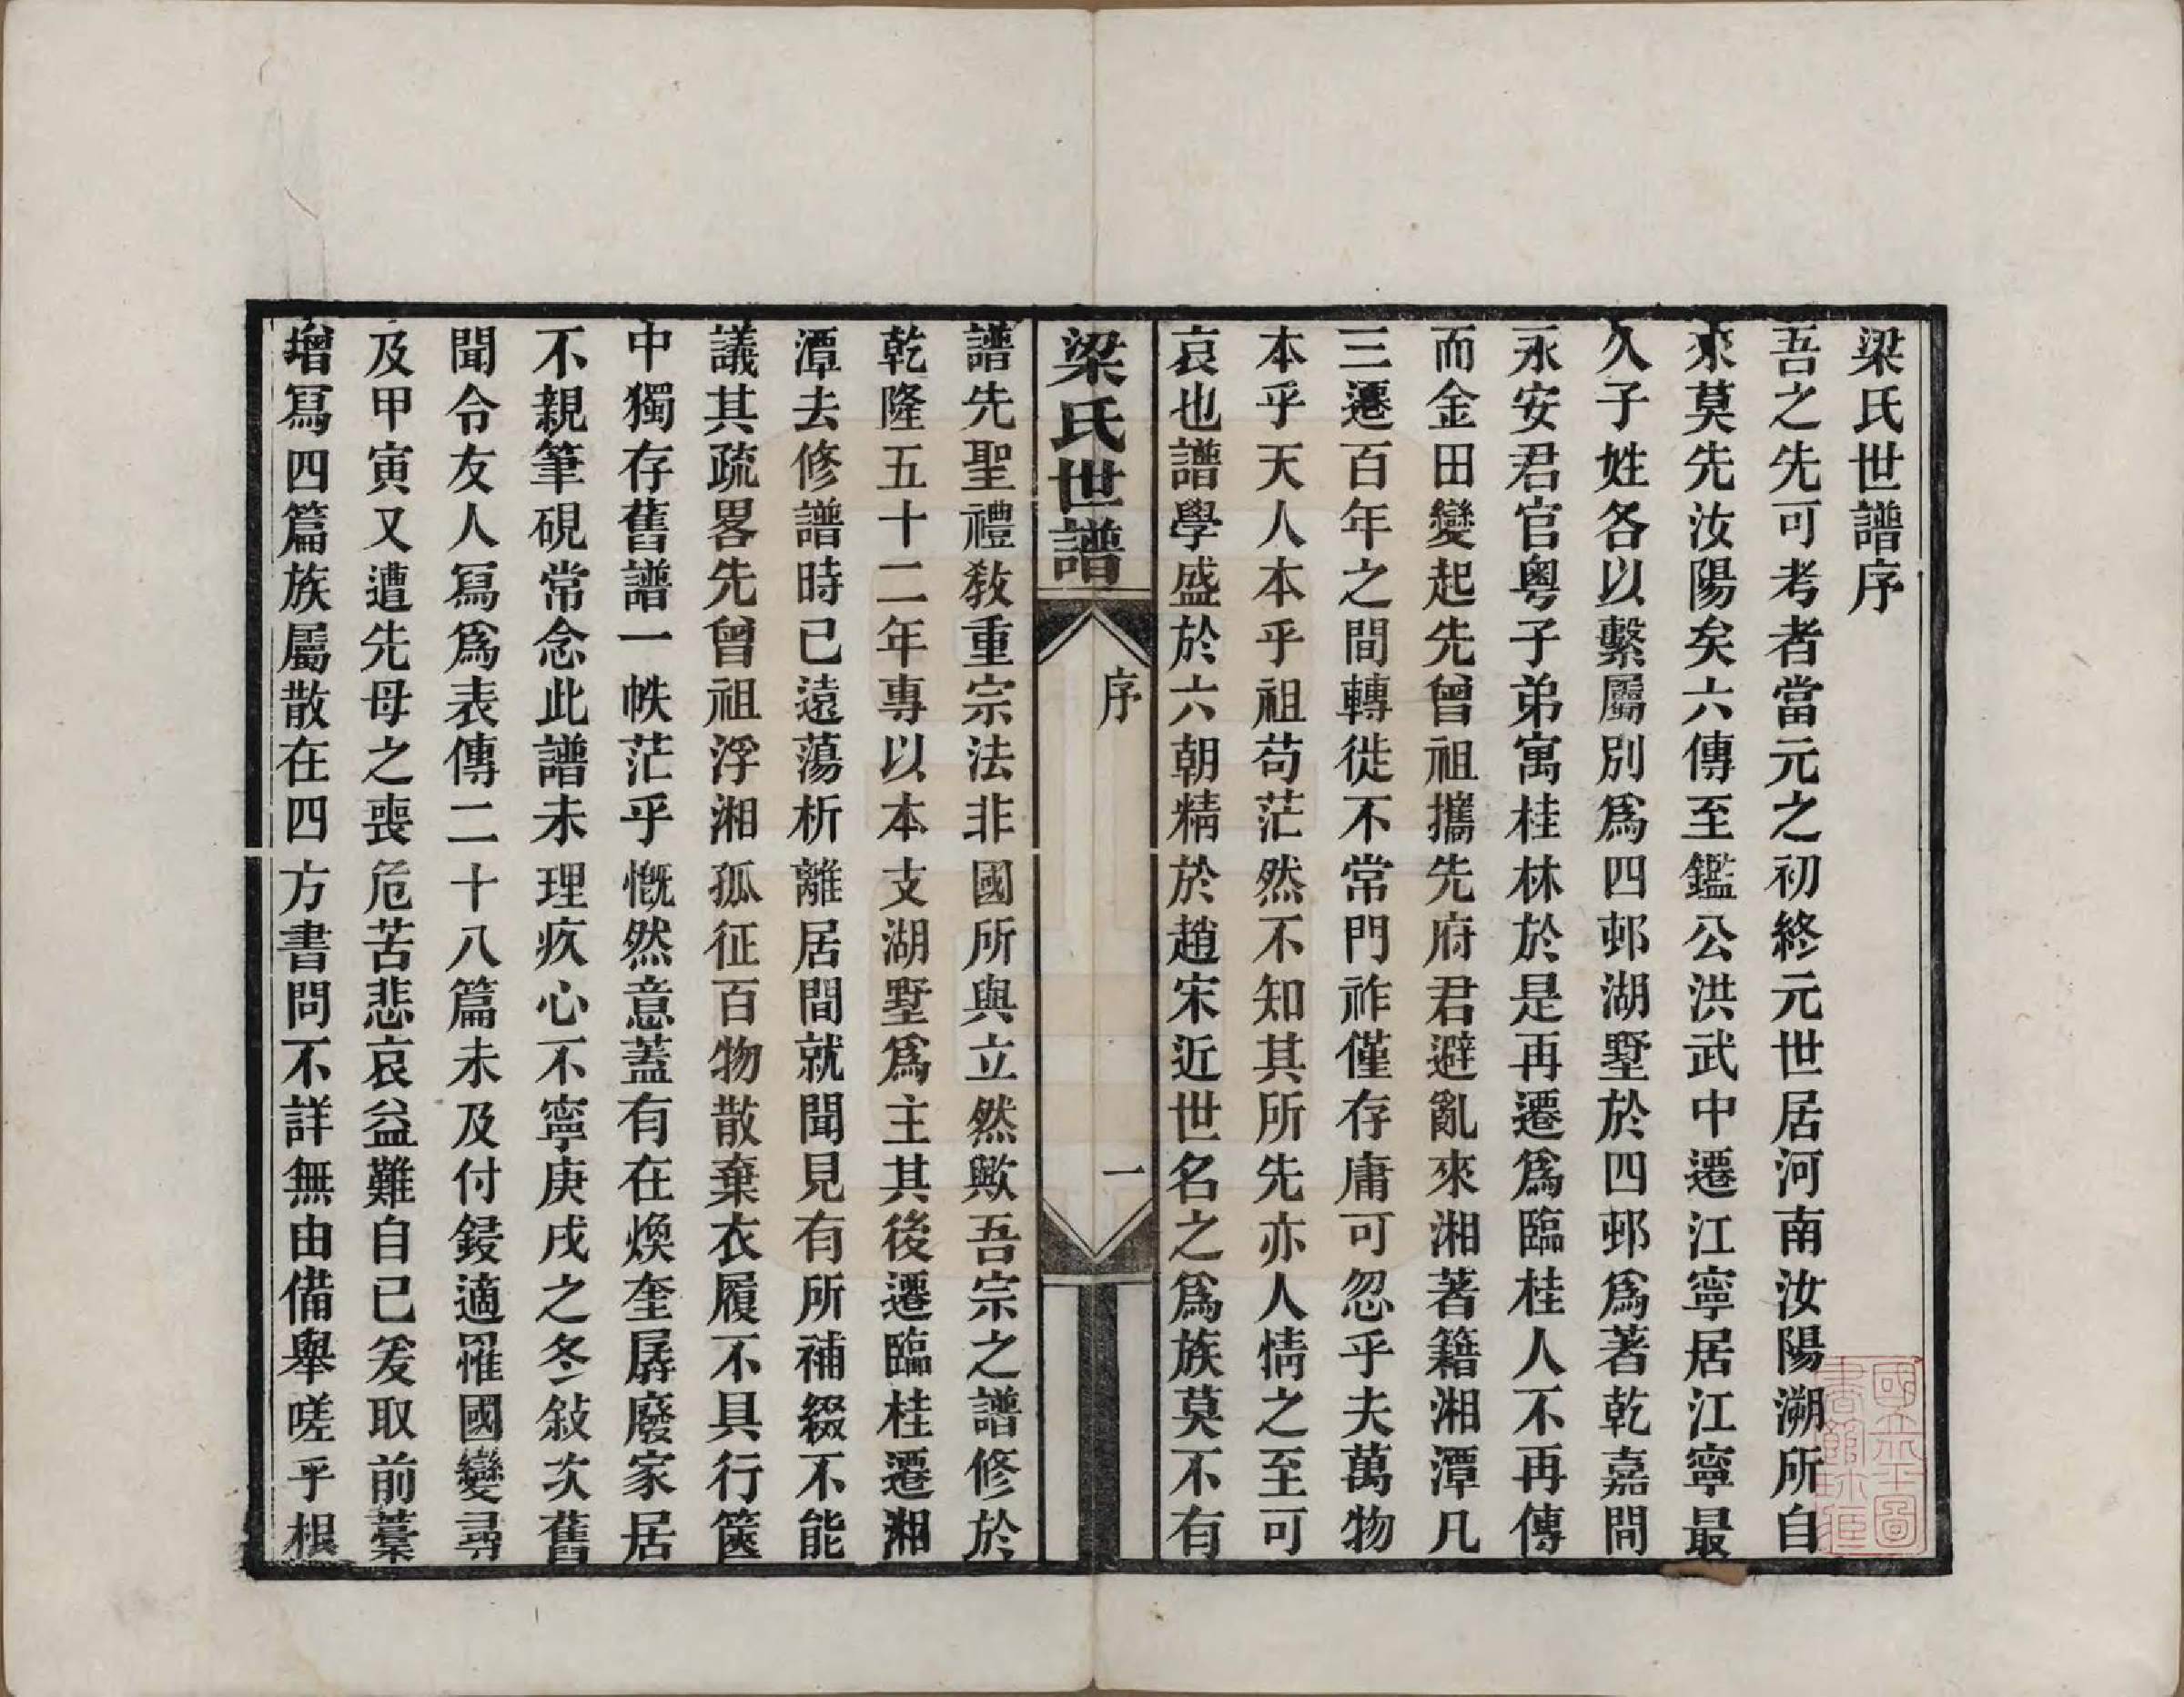 梁氏世譜序
吾之先可考者當元之初終元世居河南汝陽溯所自
來莫先汝陽矣六傳至鑑公洪武中遷江寧居江寧最
久子姓各以繫屬別爲四邨湖墅於四邨爲著乾嘉間
永安君官粤子弟寓桂林於是再遷爲臨桂人不再傳
而金田變起先曾祖攜先府君避亂來湘著籍湘潭凡
三遷百年之間轉徙不常門祚僅存庸可忽乎夫萬物
本乎天人本乎祖苟茫然不知其所先亦人情之至可
哀也譜學盛於六朝精於趙宋近世名之爲族莫不有
梁氏世譜
序
一
譜先聖禮敎重宗法非國所與立然歟吾宗之譜修於
乾隆五十二年專以本支湖墅爲主其後遷臨桂遷湘
潭去修譜時已遠蕩析離居間就聞見有所補綴不能
議其疏畧先曾祖浮湘孤征百物散棄衣履不具行篋
中獨存舊譜一帙茫乎慨然意蓋有在煥奎孱廢家居
不親筆硯常念此譜未理疚心不寧庚戌之冬敍次舊
聞令友人寫爲表傳二十八篇未及付鋟適罹國變尋
及甲寅又遭先母之喪危苦悲哀益難自已爰取前藁
增寫四篇族屬散在四方書問不詳無由備舉嗟乎根
國立中圖